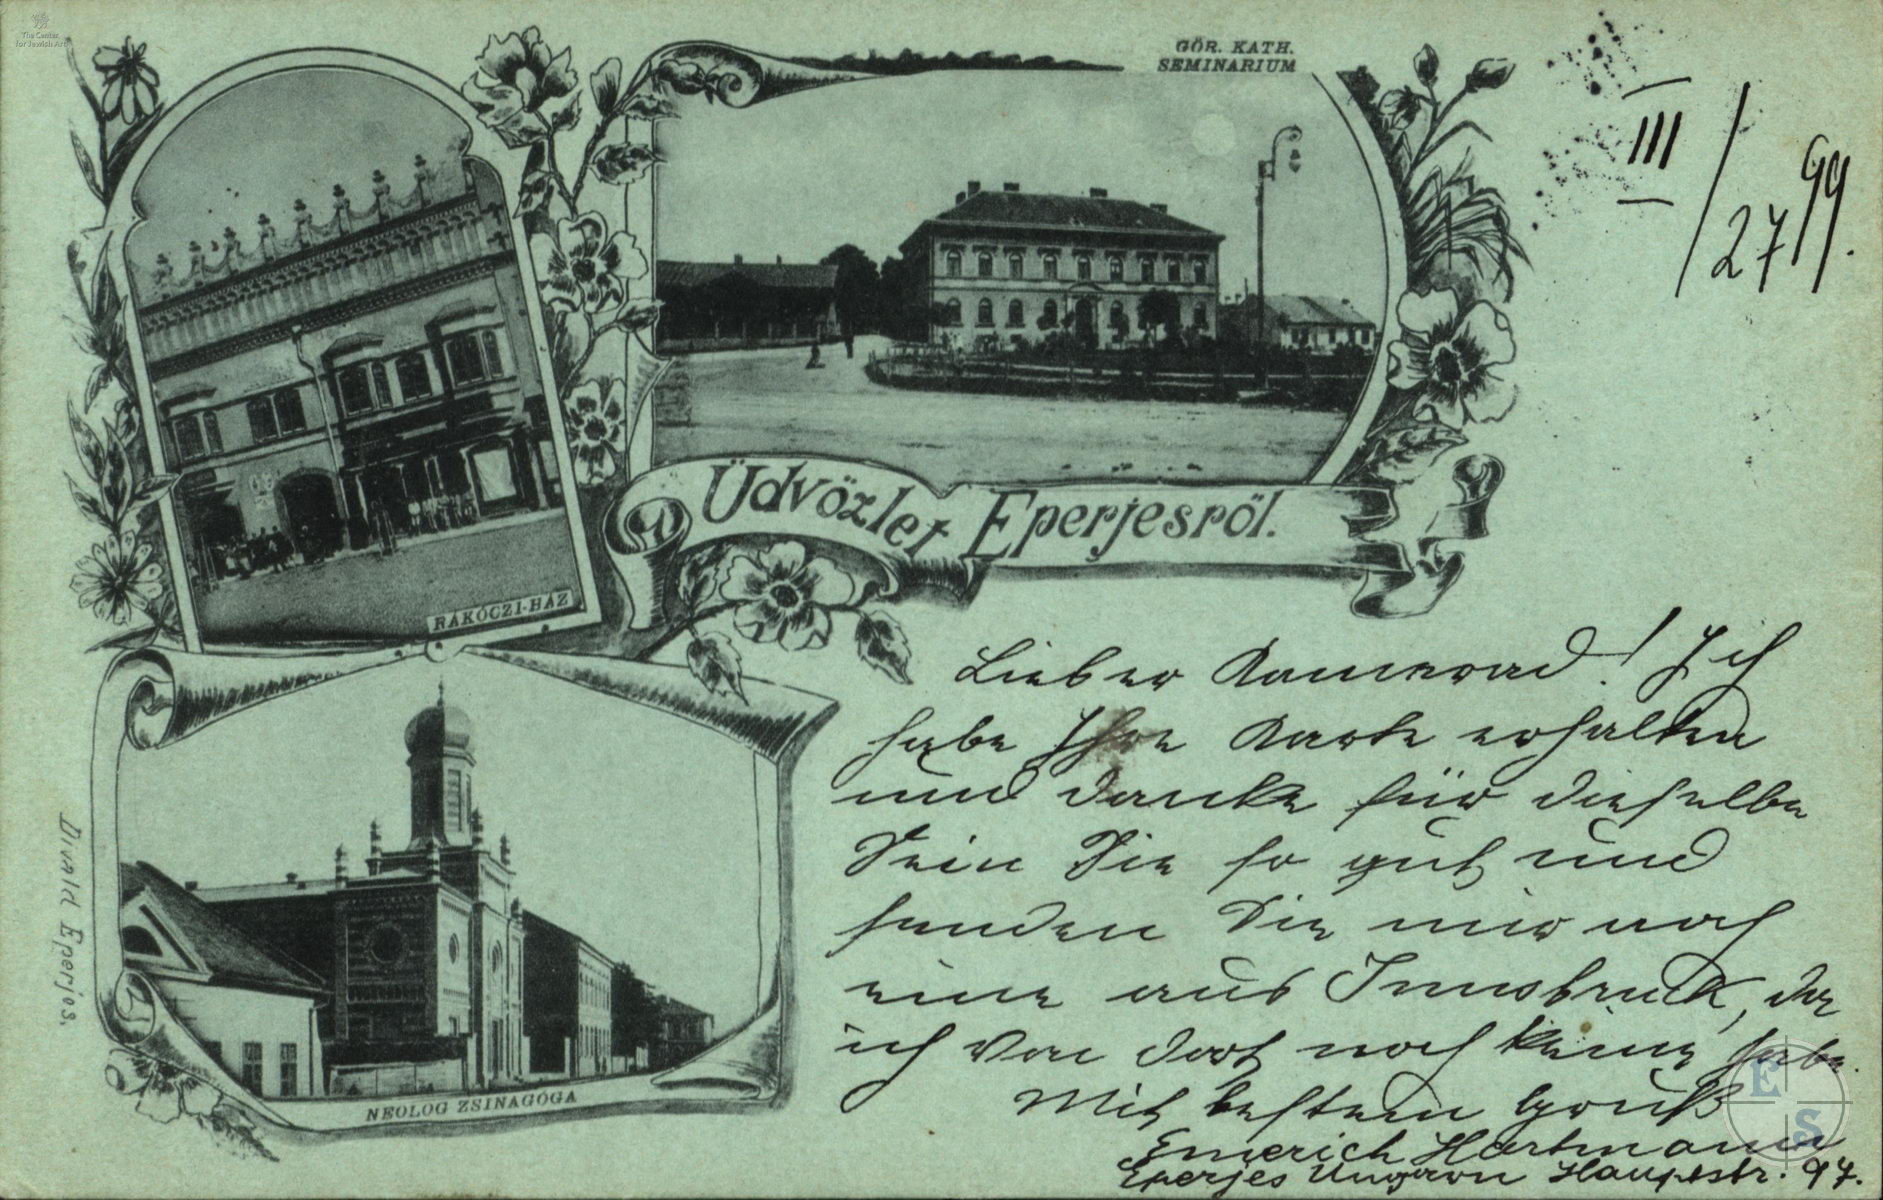 The Center
for Jewish Art
GÖR. KATH.
SEMINARIUM
III/27 99.
Üdvözlet Eperjesről.
RÁKÓCZI-HÁZ
NEOLOG ZSINAGÓGA
Divald Eperjes.
Lieber Kamerad! Ich
habe Ihre Karte erhalten
und danke für dieselbe
Sein Sie so gut und
senden Sie mir noch
eine aus Innsbruck, da
ich von dort noch keine habe.
Mit bestem Gruß
Emerich Hartmann
Eperjes Ungarn Hauptstr. 97.
E
S